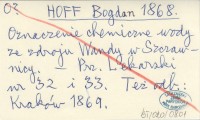 03 HOFF Bogdan 1868.
Oznaczenie chemiczne wody
ze zdroju Wandy w Szczaw-
nicy. – Prz. Lekarski
nr 32 i 33. Też odb.:
Kraków 1869.